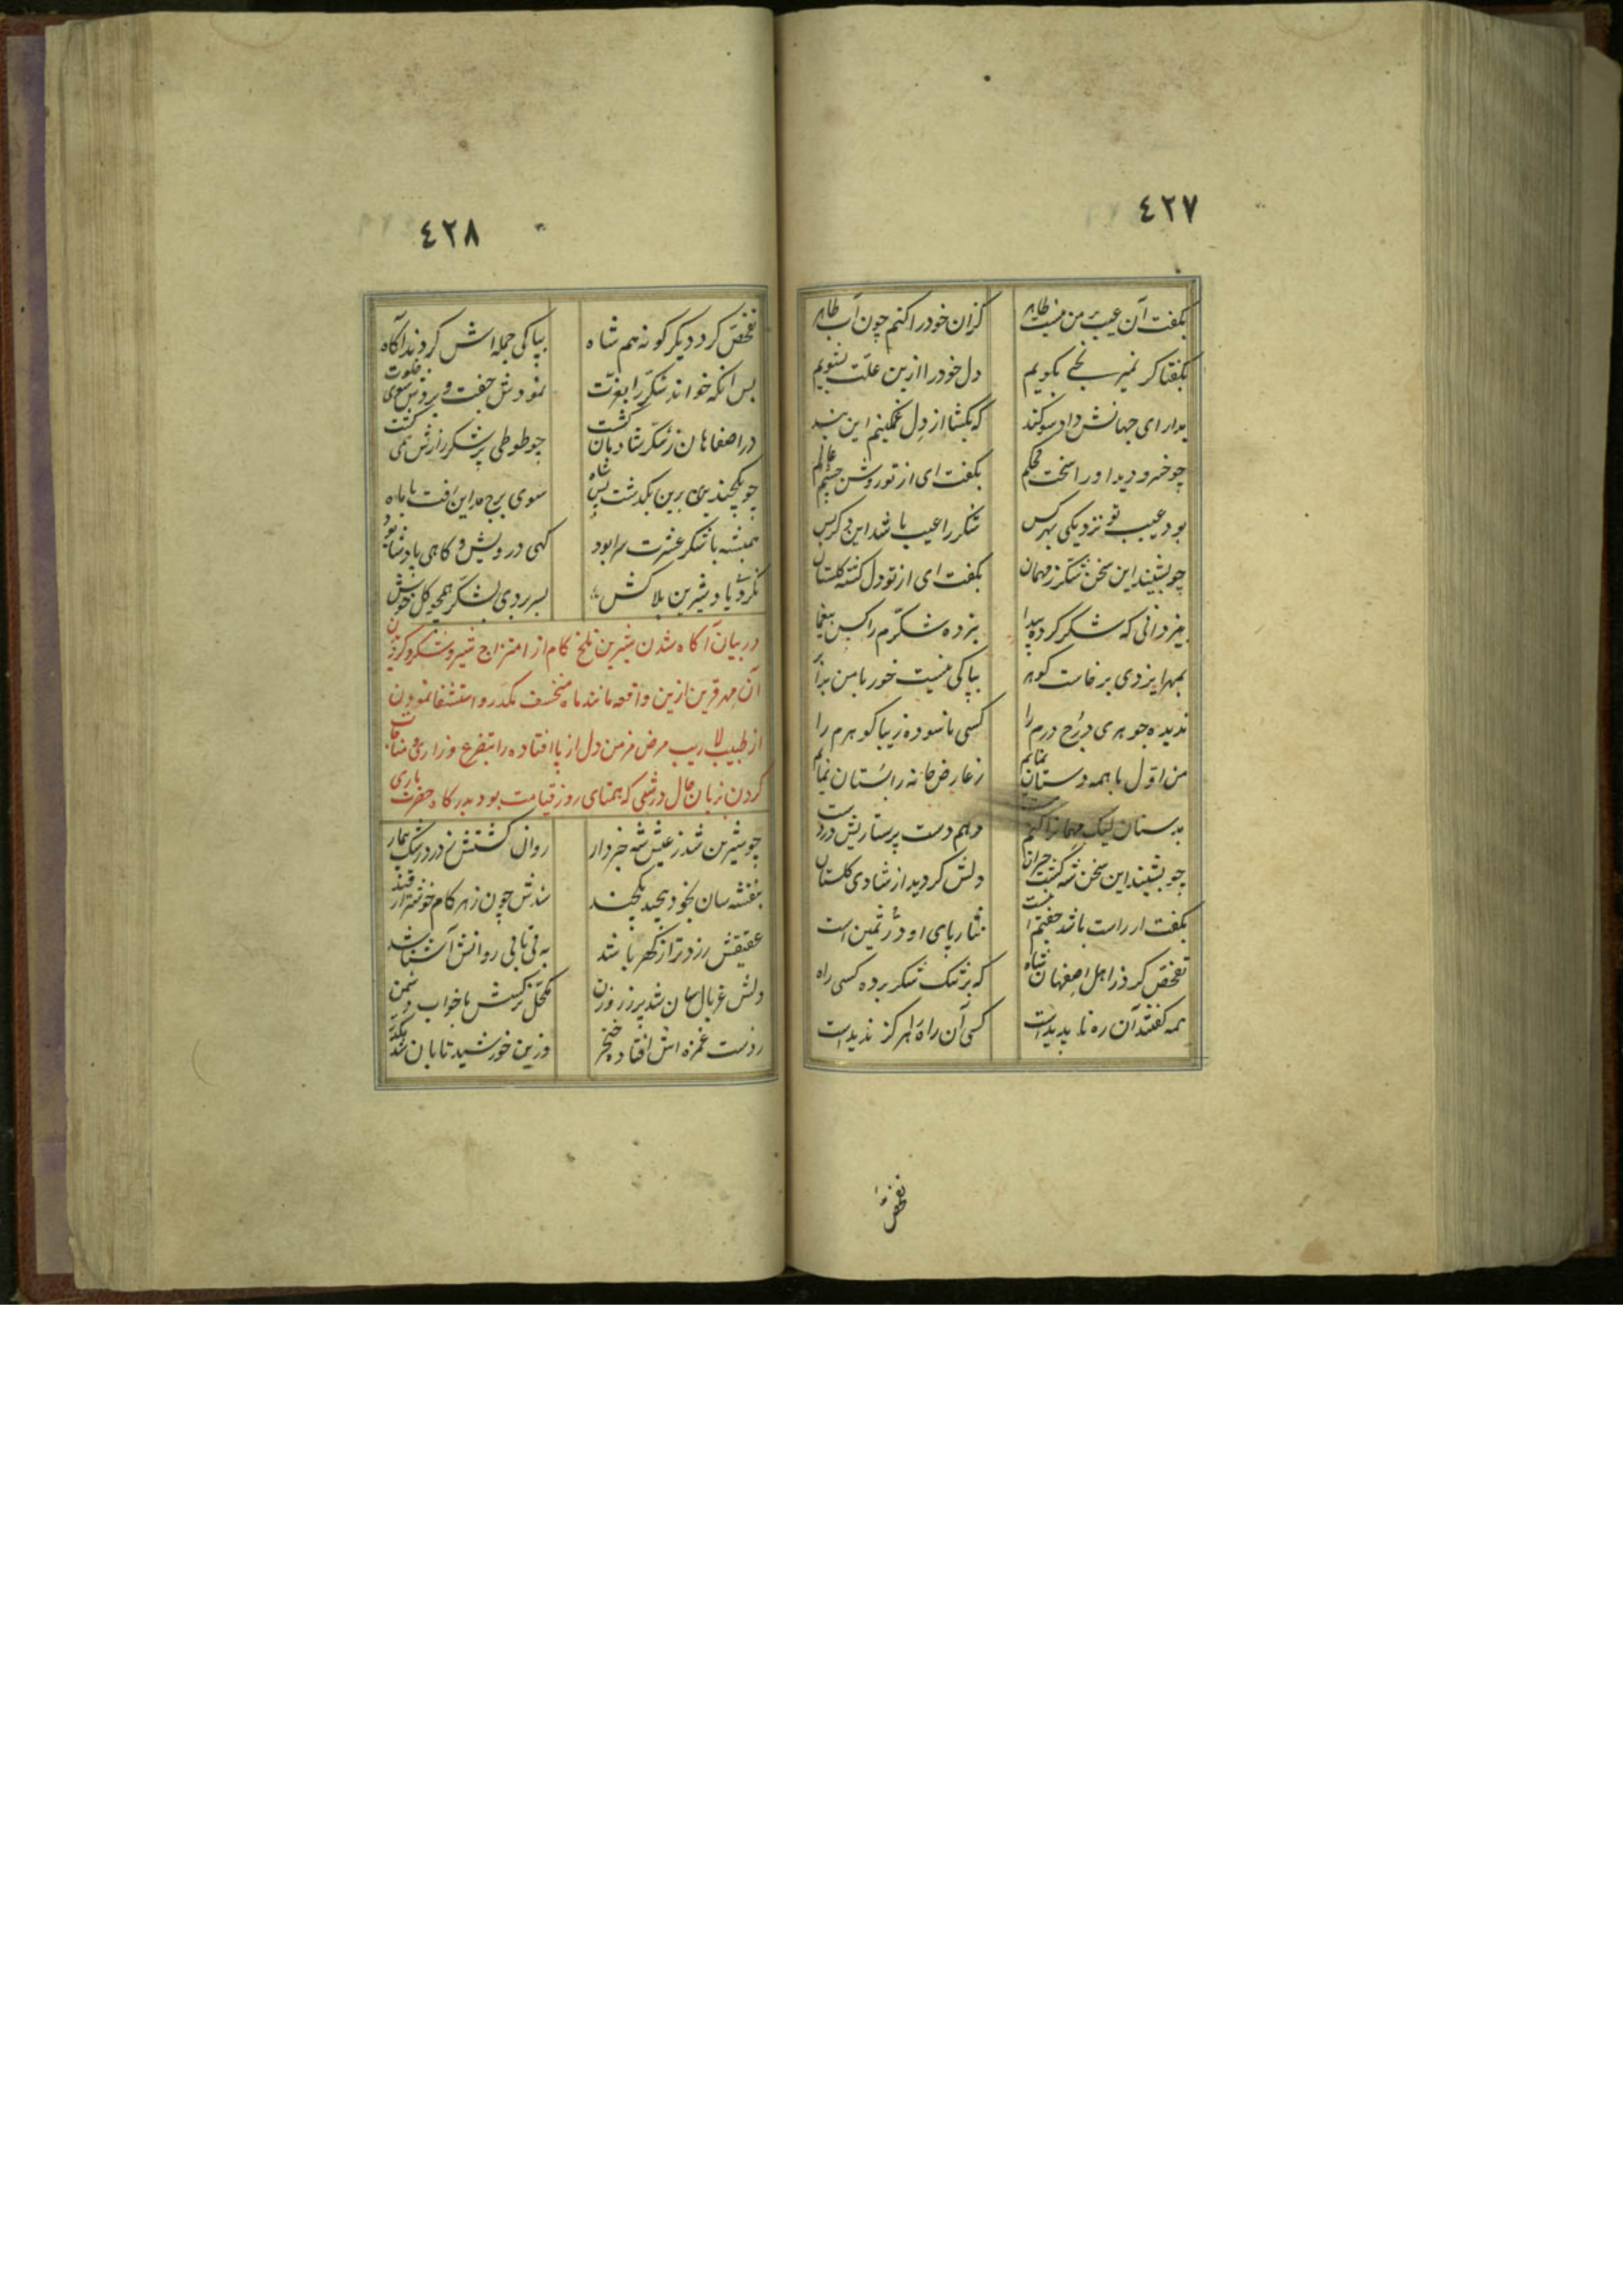 ٤٢٧
بگفت آن عیب من نیست ظاهر کزان خود را کنم چون آب طاهر
بگفتا گر نمیرنجی بگویم دل خود را ازین علت بشویم
بدارای جهانش داد سوگند که بگشا از دل غمگینم این بند
چو خسرو دید او را سخت محکم بگفت ای از تو روشن چشم عالم
بود عیب تو نزدیکی بهر کس شکر را عیب باشد این
چو بشنید این سخن شکر ز مهمان بگفت ای از تو دل گشته گلستان
بیزدانی که شکر کرده پیدا نبرده شکرم را کس بیغما
بمهر ایزدی برخاست گوهر بپاکی نیست خور با من برابر
ندیده جوهری درج درم را کسی ناسوده زیبا گوهرم را
من اول با همه دستان نمایم ز عارض خانه را بستان نمایم
بدستان لیک مهمانرا کنم مست دهم دست پرستاریش در دست
چو بشنید این سخن شه گشت حیران دلش گردید از شادی گلستان
بگفت ار راست باشد جفتم است نثار پای او در ثمین است
تفحص کرد از اهل اصفهان شاه که بر تنگ شکر برده کسی راه
همه گفتند آن ره ناپدید است کسی آن راه هرگز ندید است
تفحص
٤٢٨
تفحص کرد دیگر گونه هم شاه بپاکی جمله اش کردند آگاه
پس آنکه خواند شکر را بعزت نمودش جفت و بردش سوی خلوت
در اصفاهان ز شکر شادمان گشت چو طوطی بر شکر رازش همی گشت
چو یکچندی برین بگذشت پس شاه سوی برج مداین رفت با ماه
همیشه با شکر عشرت سرا بود گهی درویش و گاهی پادشا بود
نکردی یاد شیرین بلاکش بسر بردی بشکر همچو گل خوش
در بیان آگاه شدن شیرین تلخ کام از امتزاج شیر و شکر و گردیدن
آن مهر قرین ازین واقعه مانند ماه منخسف مکدر و استشفا نمودن
از طبیب لاریب مرض مزمن دل از پا افتاده را بتضرع و زاری و مناجات
کردن زبان حال در شبی که همتای روز قیامت بود بدرگاه حضرت باری
چو شیرین شد ز عیش شه خبردار روان گشتش ز درد رشک بیمار
بنفشه سان بخود پیچید یکچند شدش چون زهر کام خوشتر از قند
عقیقش زردتر از کهربا شد به بی تابی روانش آشنا شد
دلش غربال سان شد پر ز روزن مکحل نرگسش با خواب دشمن
ز دست غمزه اش افتاد خنجر وزین خورشید تابان شد مکدر